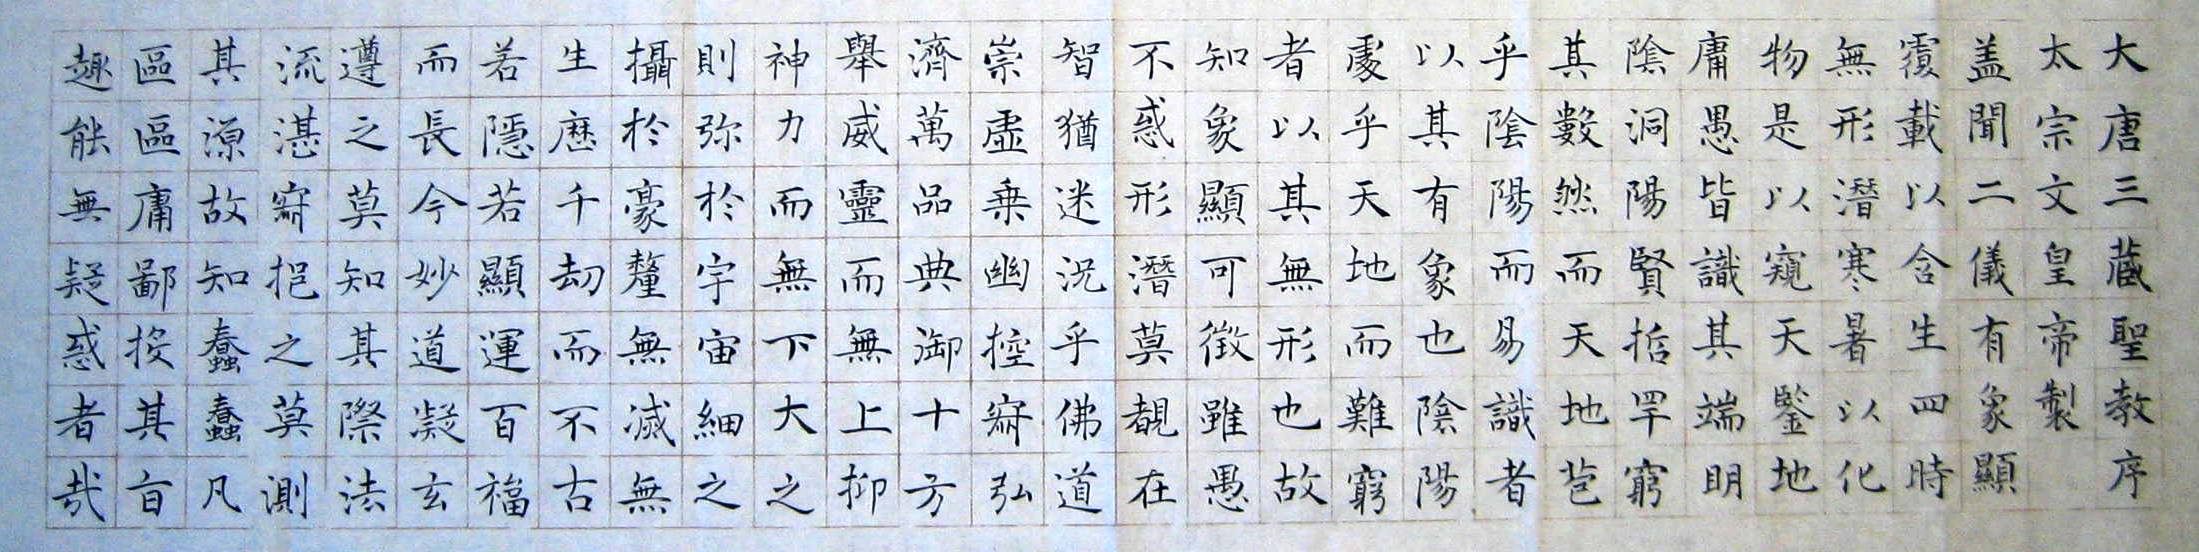 大唐三藏聖教序
太宗文皇帝製
盖聞二儀有象顯
覆載以含生四時
無形潛寒暑以化
物是以窺天鑒地
庸愚皆識其端明
陰洞陽賢哲罕窮
其數然而天地苞
乎陰陽而易識者
以其有象也陰陽
處乎天地而難窮
者以其無形也故
知象顯可徵雖愚
不惑形潛莫覩在
智猶迷況乎佛道
崇虛乗幽控寂弘
濟萬品典御十方
舉威靈而無上抑
神力而無下大之
則弥於宇宙細之
攝於豪釐無滅無
生歷千劫而不古
若隱若顯運百福
而長今妙道凝玄
遵之莫知其際法
流湛寂挹之莫測
其源故知蠢蠢凡
區區庸鄙投其旨
趣能無疑惑者哉